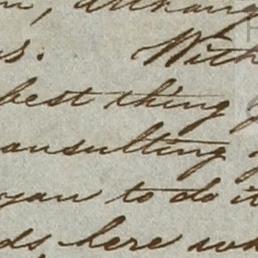 s. With
best thing
consulting
you to do it
ds here wh